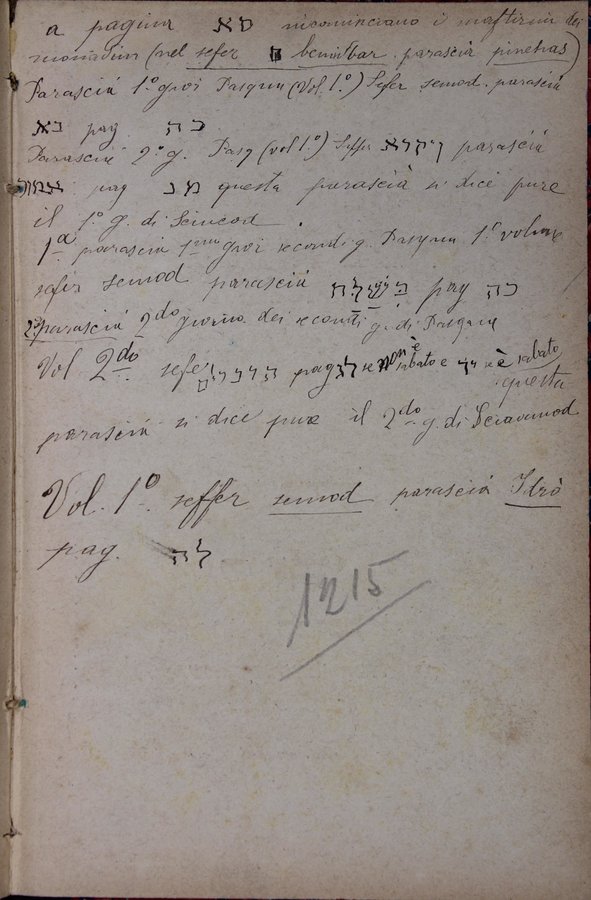 a pagina סא ricominciano i maftirim dei
monadim (nel sefer bemidbar parascià pinehas)
Parascià 1.° gior Pasqua (Vol. 1.°) Sefer semod. parascià
בא pag כה
Parascià 2.° g. Pasq (vol 1.°) Seffer ויקרא parascià
pag מנ questa parascià si dice pure
il 1.° g. di
1ª parascia 1mo gior secondi g. Pasqua 1.° volume
sefer semod parascià בשלח pag כה
2ª parascià 2do giorno dei secondi g. di Pasqua
Vol 2do sefer הדברים pag לג se non è sabato e יד se è sabato
questa
parascià si dice pure il 2do g. di
Vol. 1° seffer semod parascià Itrò
pag. לה
1215